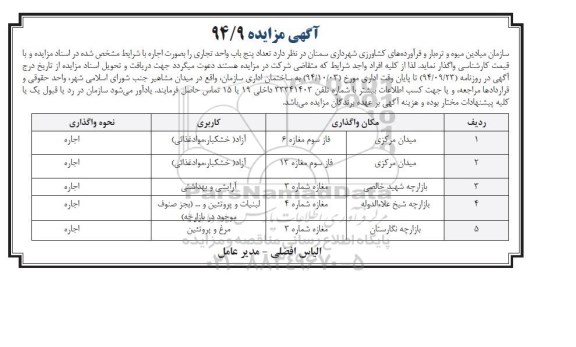 آگهی مزایده ۹۴/۹
سازمان میادین میوه و تره‌بار و فرآورده‌های کشاورزی شهرداری سمنان در نظر دارد تعداد پنج باب واحد تجاری را بصورت اجاره با شرایط مشخص شده در اسناد مزایده و با
قیمت کارشناسی واگذار نماید. لذا از کلیه افراد واجد شرایط که متقاضی شرکت در مزایده هستند دعوت میگردد جهت دریافت و تحویل اسناد مزایده از تاریخ درج
آگهی در روزنامه (۹۴/۰۹/۲۳) تا پایان وقت اداری مورخ (۹۴/۱۰/۰۳) به ساختمان اداری سازمان، واقع در میدان مشاهیر جنب شورای اسلامی شهر، واحد حقوقی و
قراردادها مراجعه، و یا جهت کسب اطلاعات بیشتر با شماره تلفن ۳۳۳۴۱۴۰۲ داخلی ۱۹ یا ۱۵ تماس حاصل فرمایند. یادآور می‌شود سازمان در رد یا قبول یک یا
کلیه پیشنهادات مختار بوده و هزینه آگهی بر عهده برندگان مزایده می‌باشد.
ردیف مکان واگذاری کاربری نحوه واگذاری
۱ میدان مرکزی فاز سوم مغازه ۶ آزاد( خشکبار،موادغذائی) اجاره
۲ میدان مرکزی فاز سوم مغازه ۱۳ آزاد( خشکبار،موادغذائی) اجاره
۳ بازارچه شهید خالصی مغازه شماره ۲ آرایشی و بهداشتی اجاره
۴ بازارچه شیخ علاءالدوله مغازه شماره ۴ لبنیات و پروتئین و ... (بجز صنوف
موجود در بازارچه) اجاره
۵ بازارچه نگارستان مغازه شماره ۲ مرغ و پروتئین اجاره
ParsNamadData
پایگاه اطلاع رسانی مناقصه و مزایده
الیاس افضلی - مدیر عامل
۰۲۱-۸۸۳۴۹۶۷۰-۵